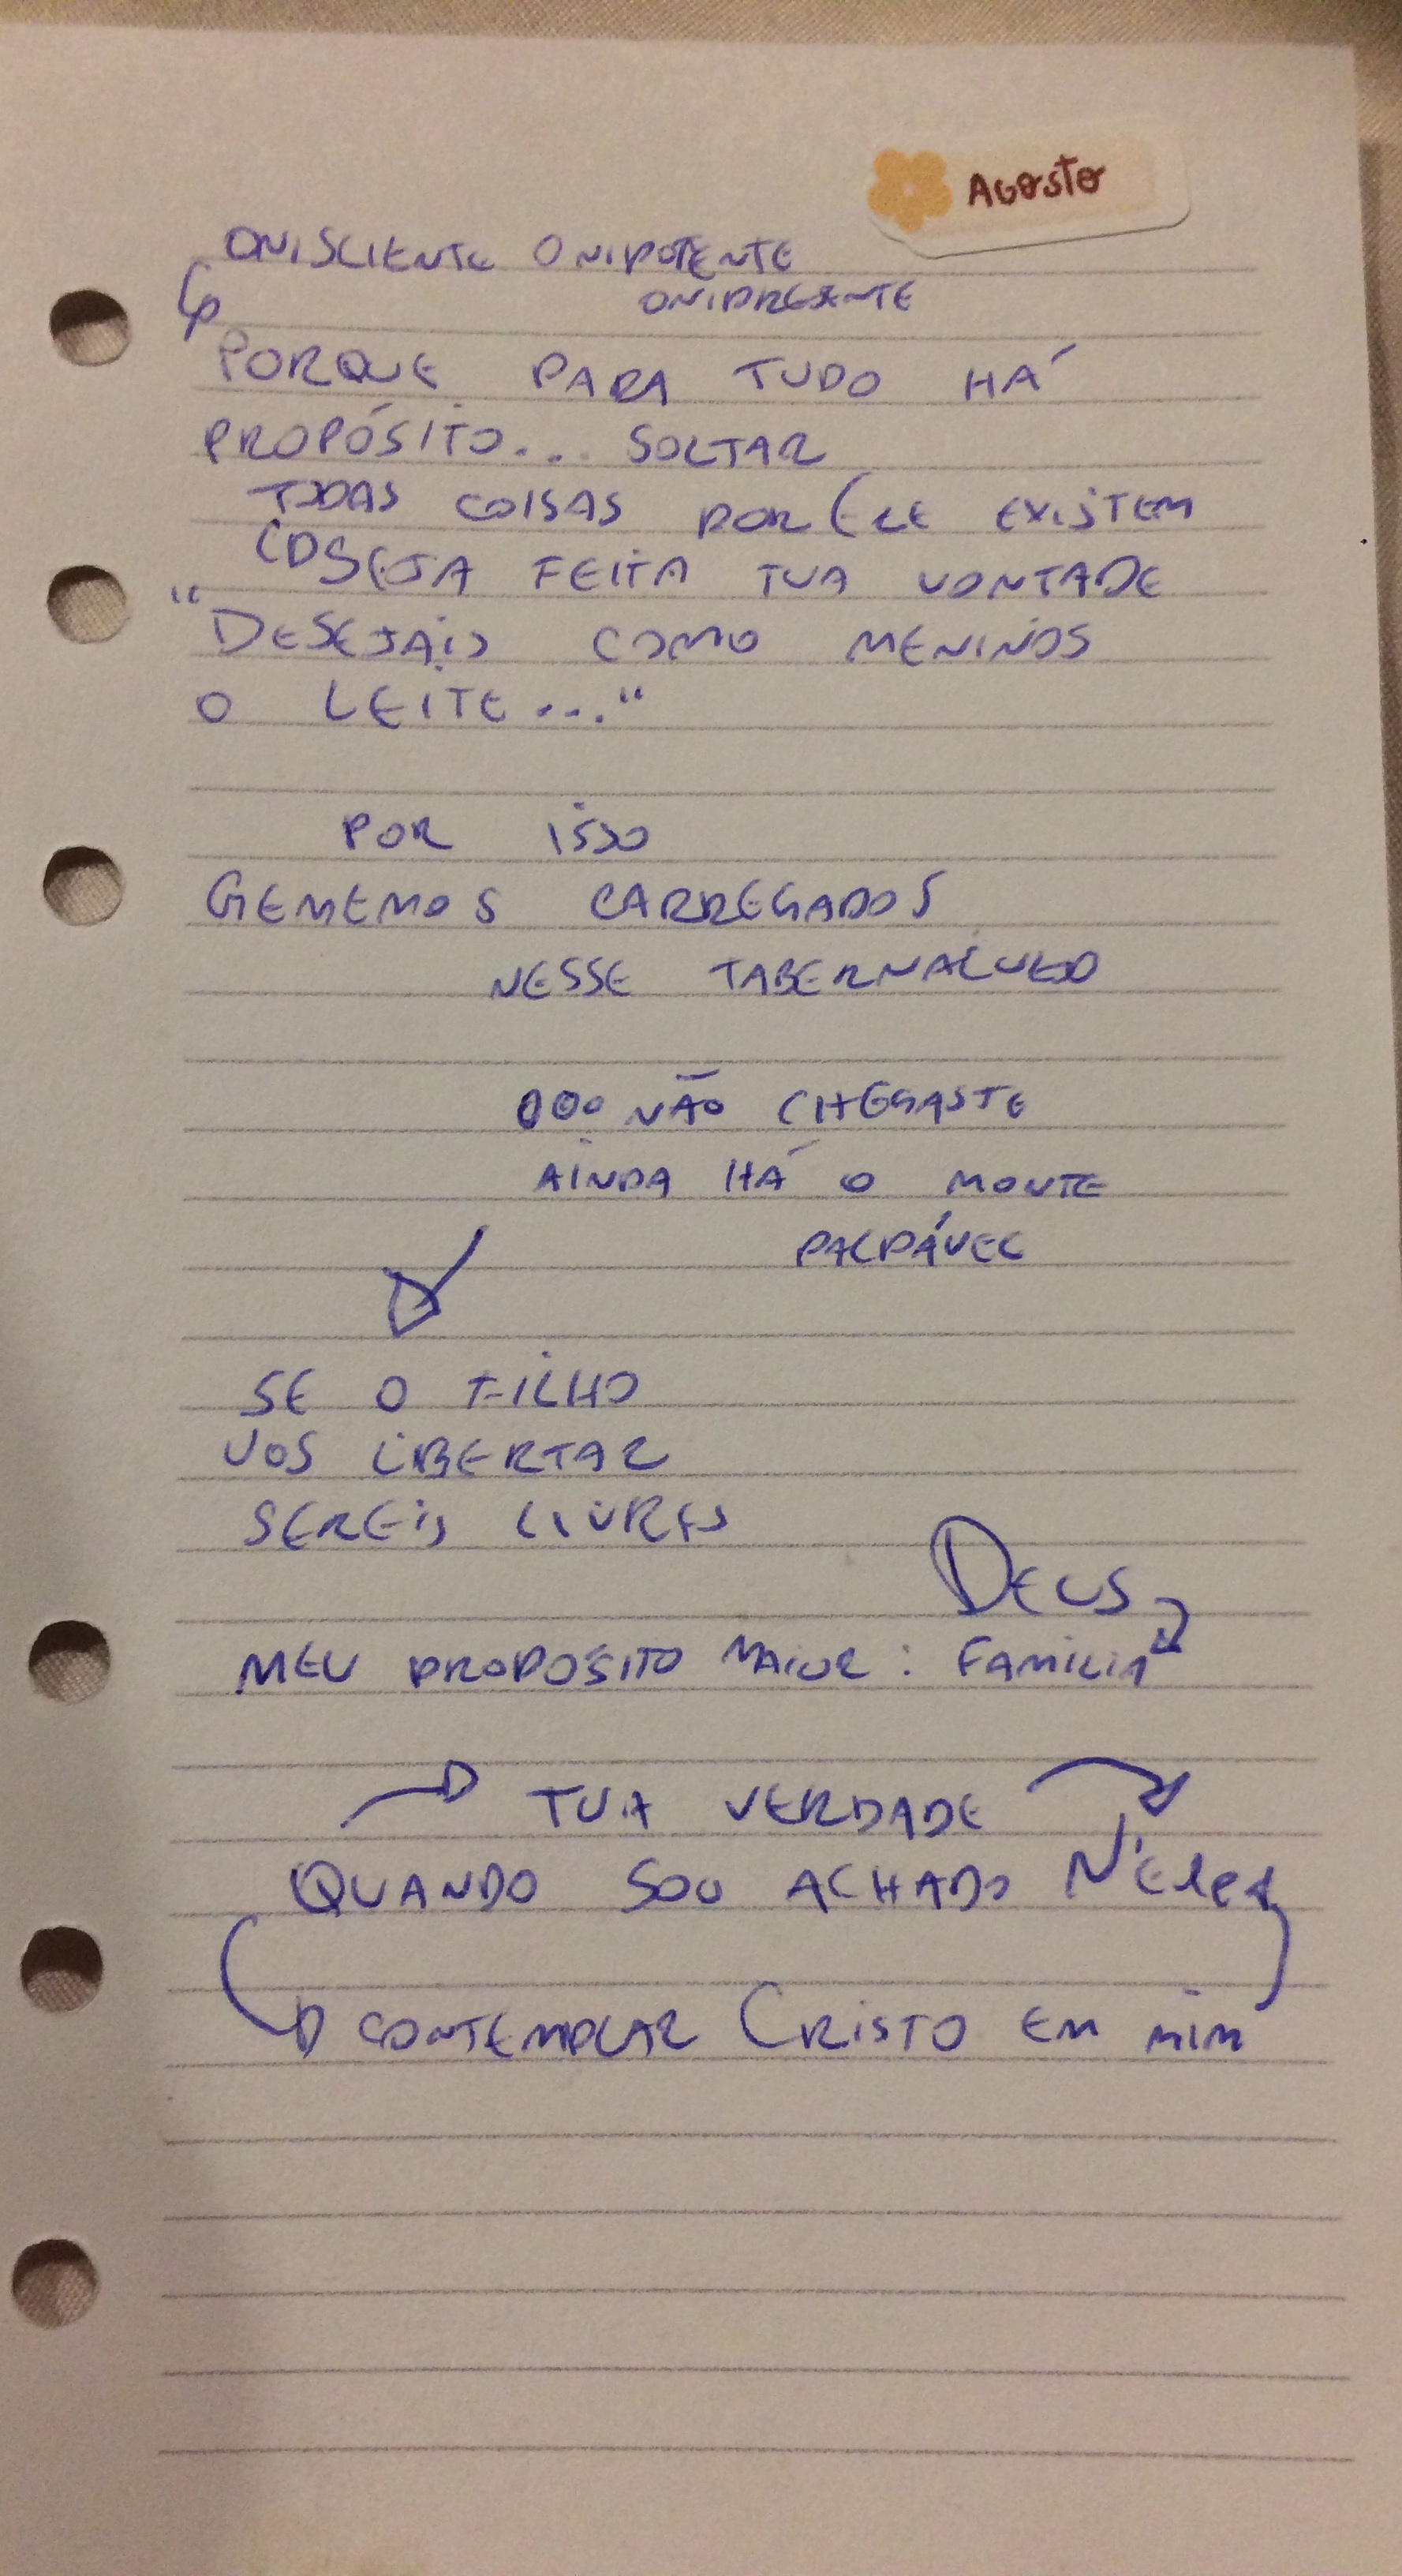 Agosto
ONISCIENTE ONIPOTENTE
ONIPRESENTE
PORQUE PARA TUDO HÁ
PROPÓSITO... SOLTAR
TODAS COISAS POR ELE EXISTEM
SEJA FEITA TUA VONTADE
"DESEJAIS COMO MENINOS
O LEITE..."
POR ISSO
GEMEMOS CARREGADOS
NESSE TABERNACULO
NÃO CHEGASTE
AINDA HÁ O MONTE
PALPÁVEL
SE O FILHO
VOS LIBERTAR
SEREIS LIVRES
DEUS
MEU PROPOSITO MAIOR: FAMILIA
TUA VERDADE
QUANDO SOU ACHADO
CONTEMPLAR CRISTO EM MIM